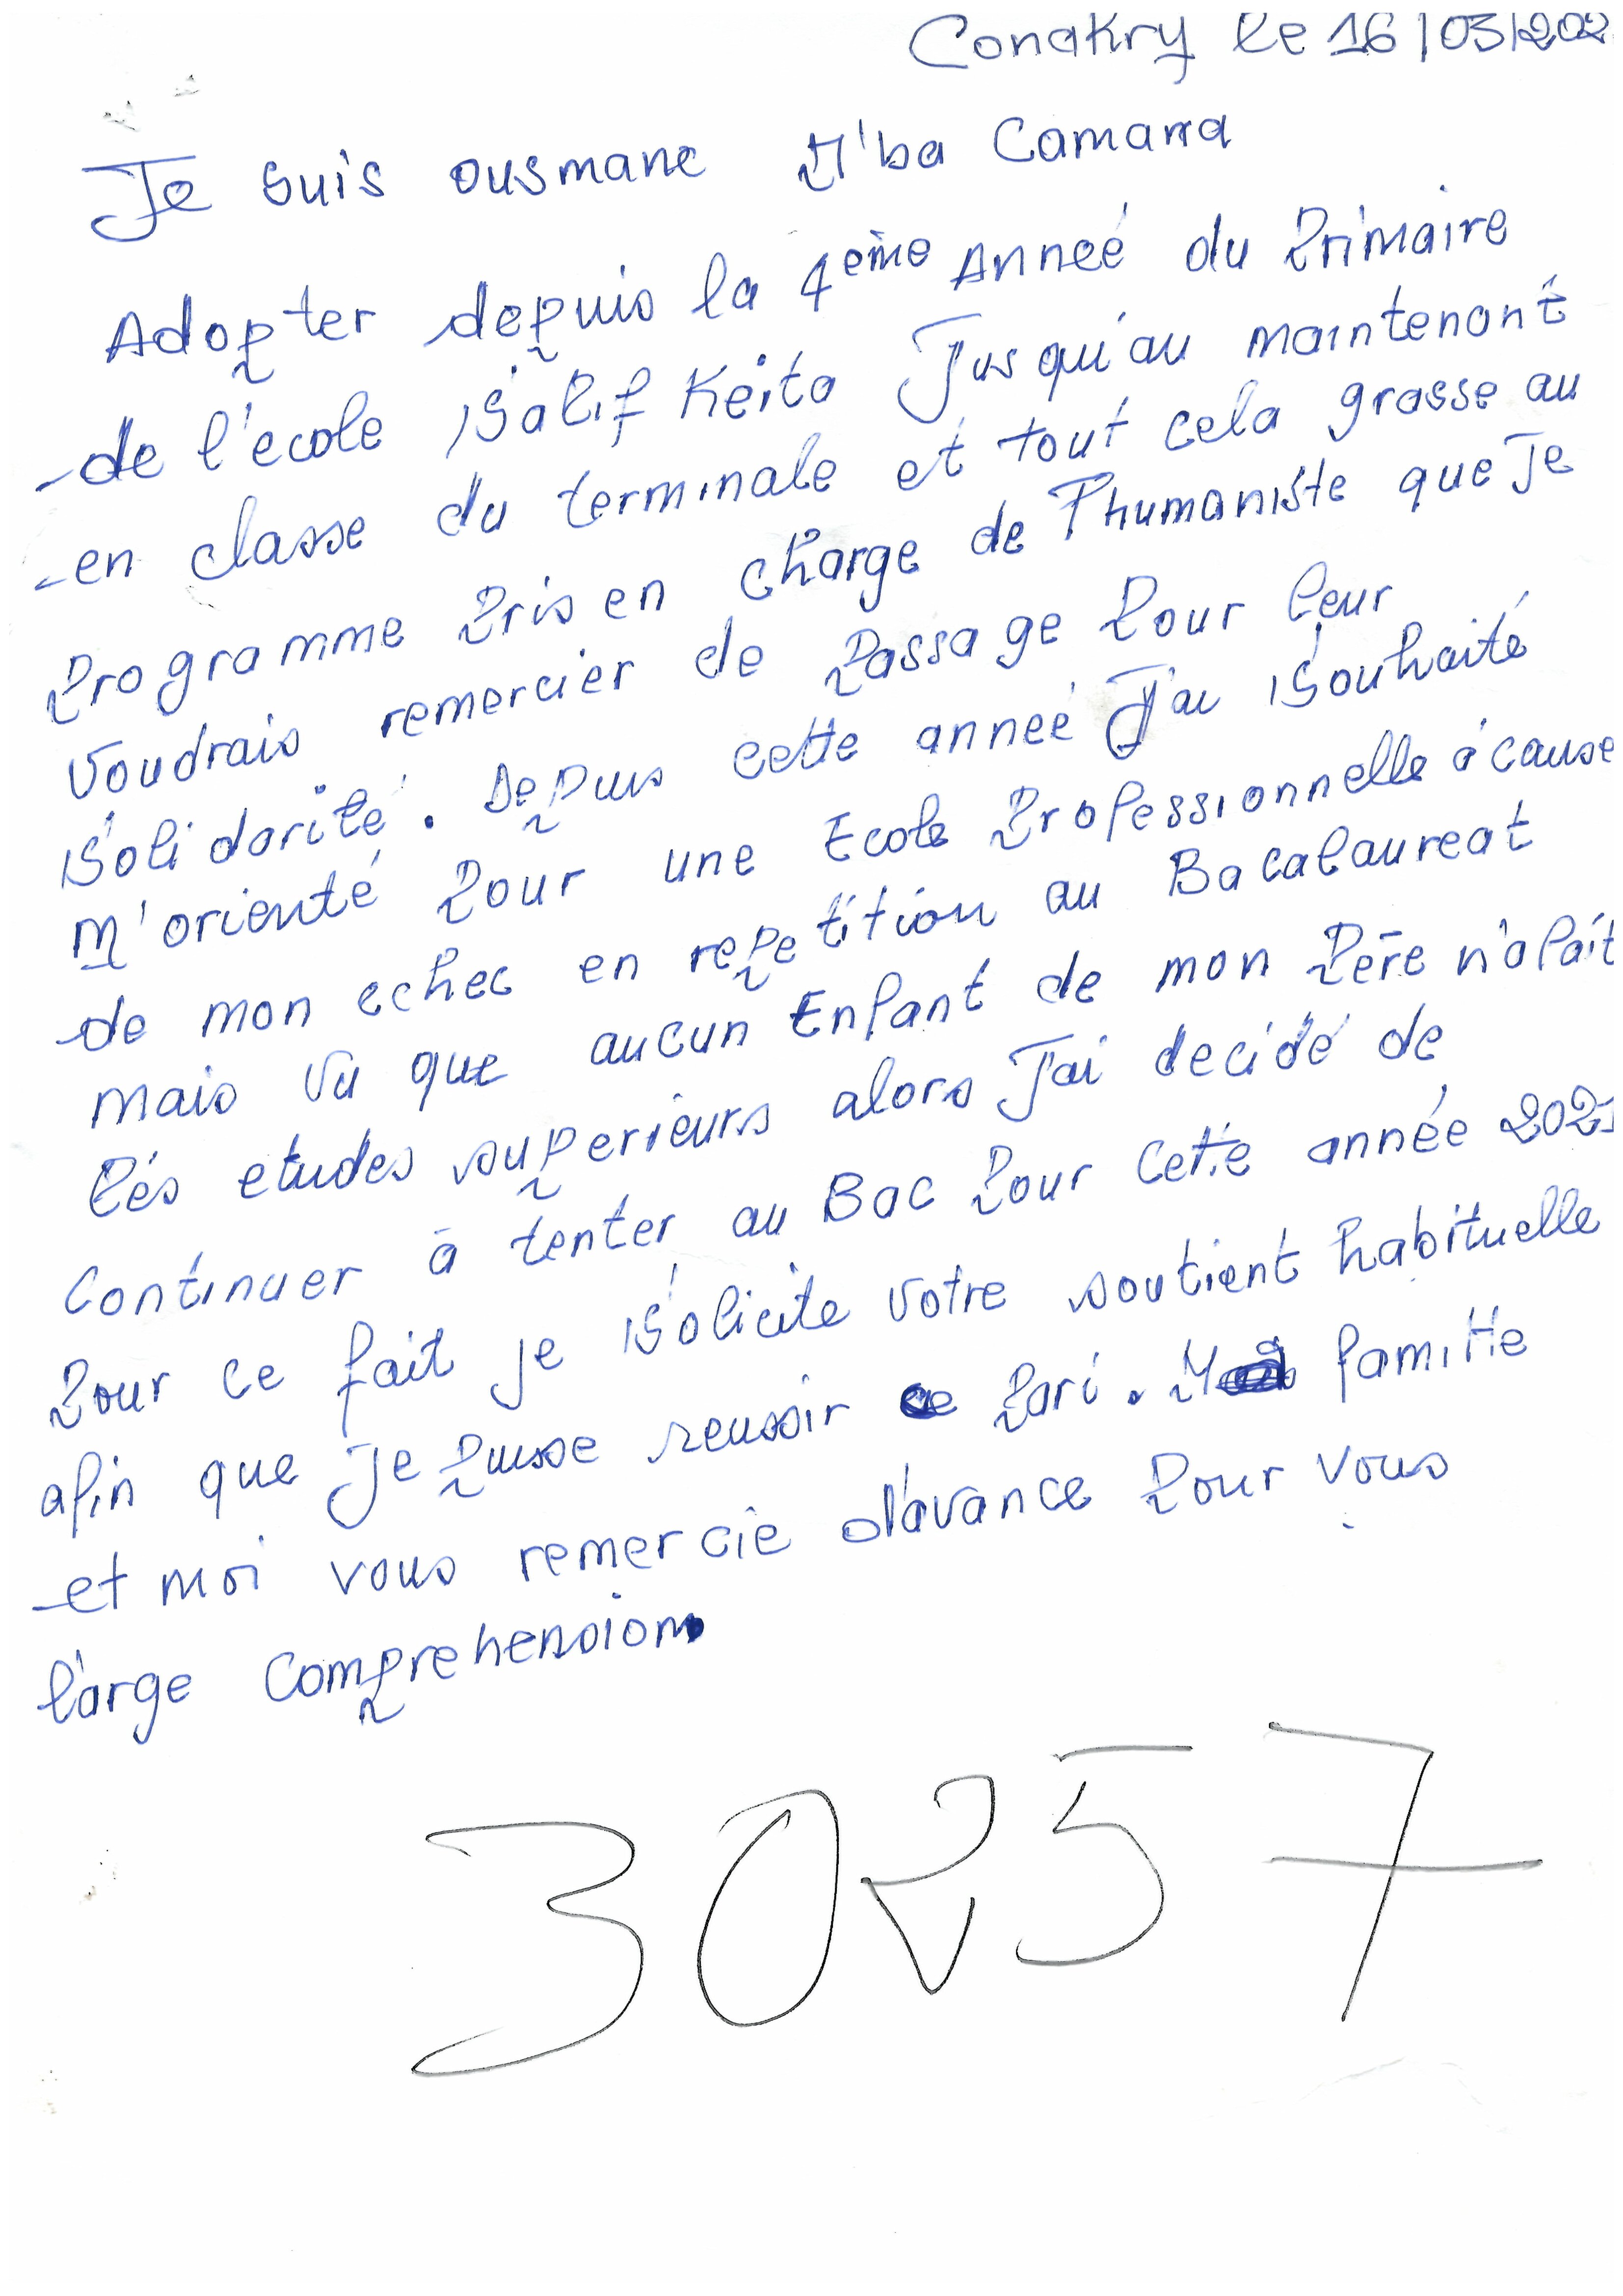 Conakry le 16/03/202
Je suis ousmane M'ba Camara
Adopter depuis la 4eme Anneé du Primaire
de l'ecole Salif Keita Jusqu'au maintenant
en classe du terminale et tout cela grasse au
Programme Pris en charge de l'humaniste que Je
Voudrais remercier de Passage Pour leur
Solidarité. Depuis cette anneé J'ai Souhaité
m'orienté Pour une Ecole Professionnelle à cause
de mon echec en repetition au Bacalaureat
mais vu que aucun Enfant de mon Père n'a fait
lés etudes superieurs alors J'ai decidé de
Continuer à tenter au Bac Pour cette année 2021
Pour ce fait je Solicite votre soutient habituelle
afin que Je Puisse reussir ce Pari. Ma famille
et moi vous remercie d'avance Pour vous
large Comprehension
30257